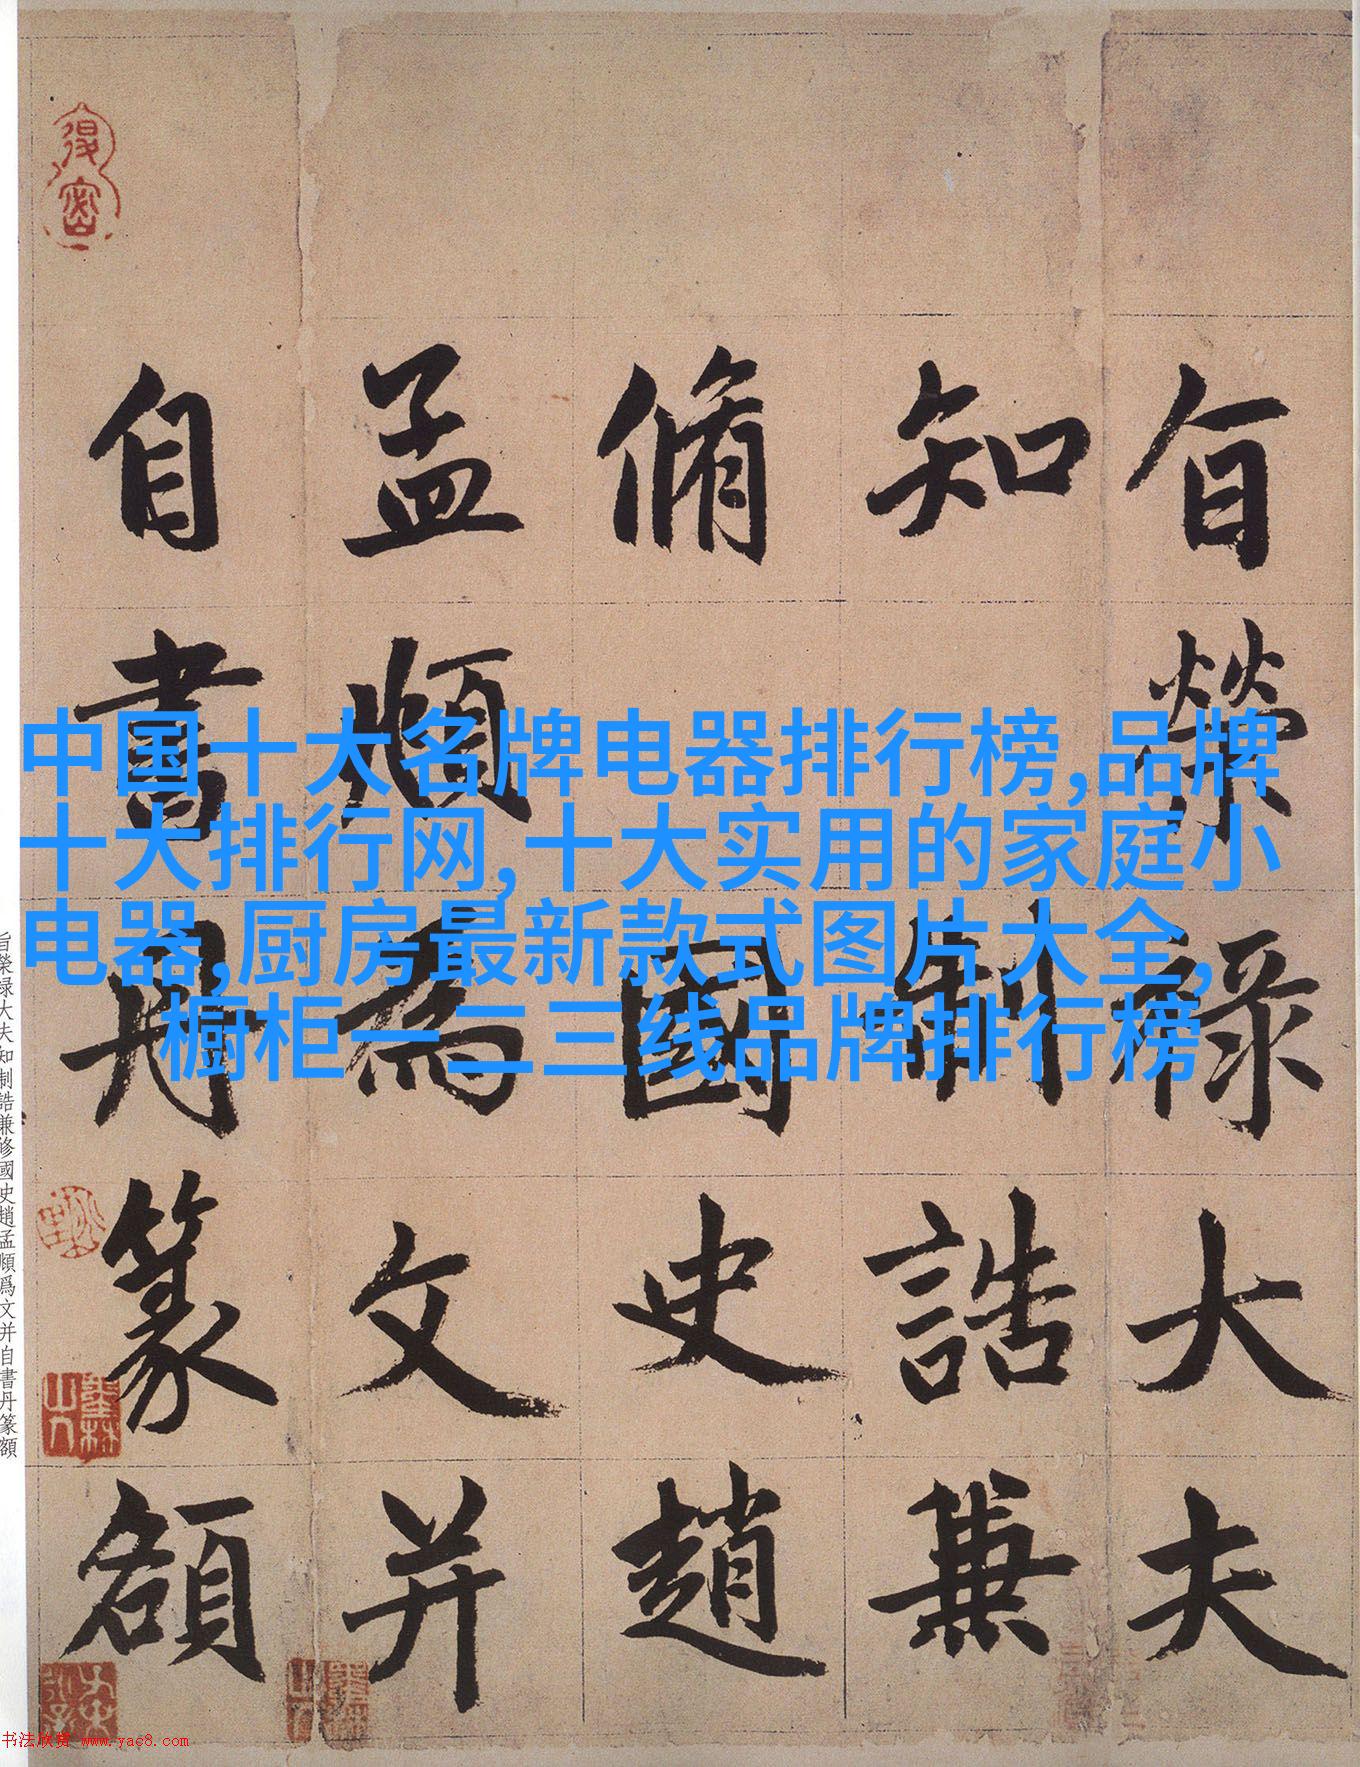 旨榮祿大夫
知制誥兼
脩國史趙
孟頫為文并
自書丹篆額
中国十大名牌电器排行榜,品牌
十大排行网,十大实用的家庭小
电器,厨房最新款式图片大全,
橱柜一二三线品牌排行榜
旨榮禄大夫知制誥兼修國史趙孟頫爲文并自書丹篆額
书法欣赏 www.yac8.com